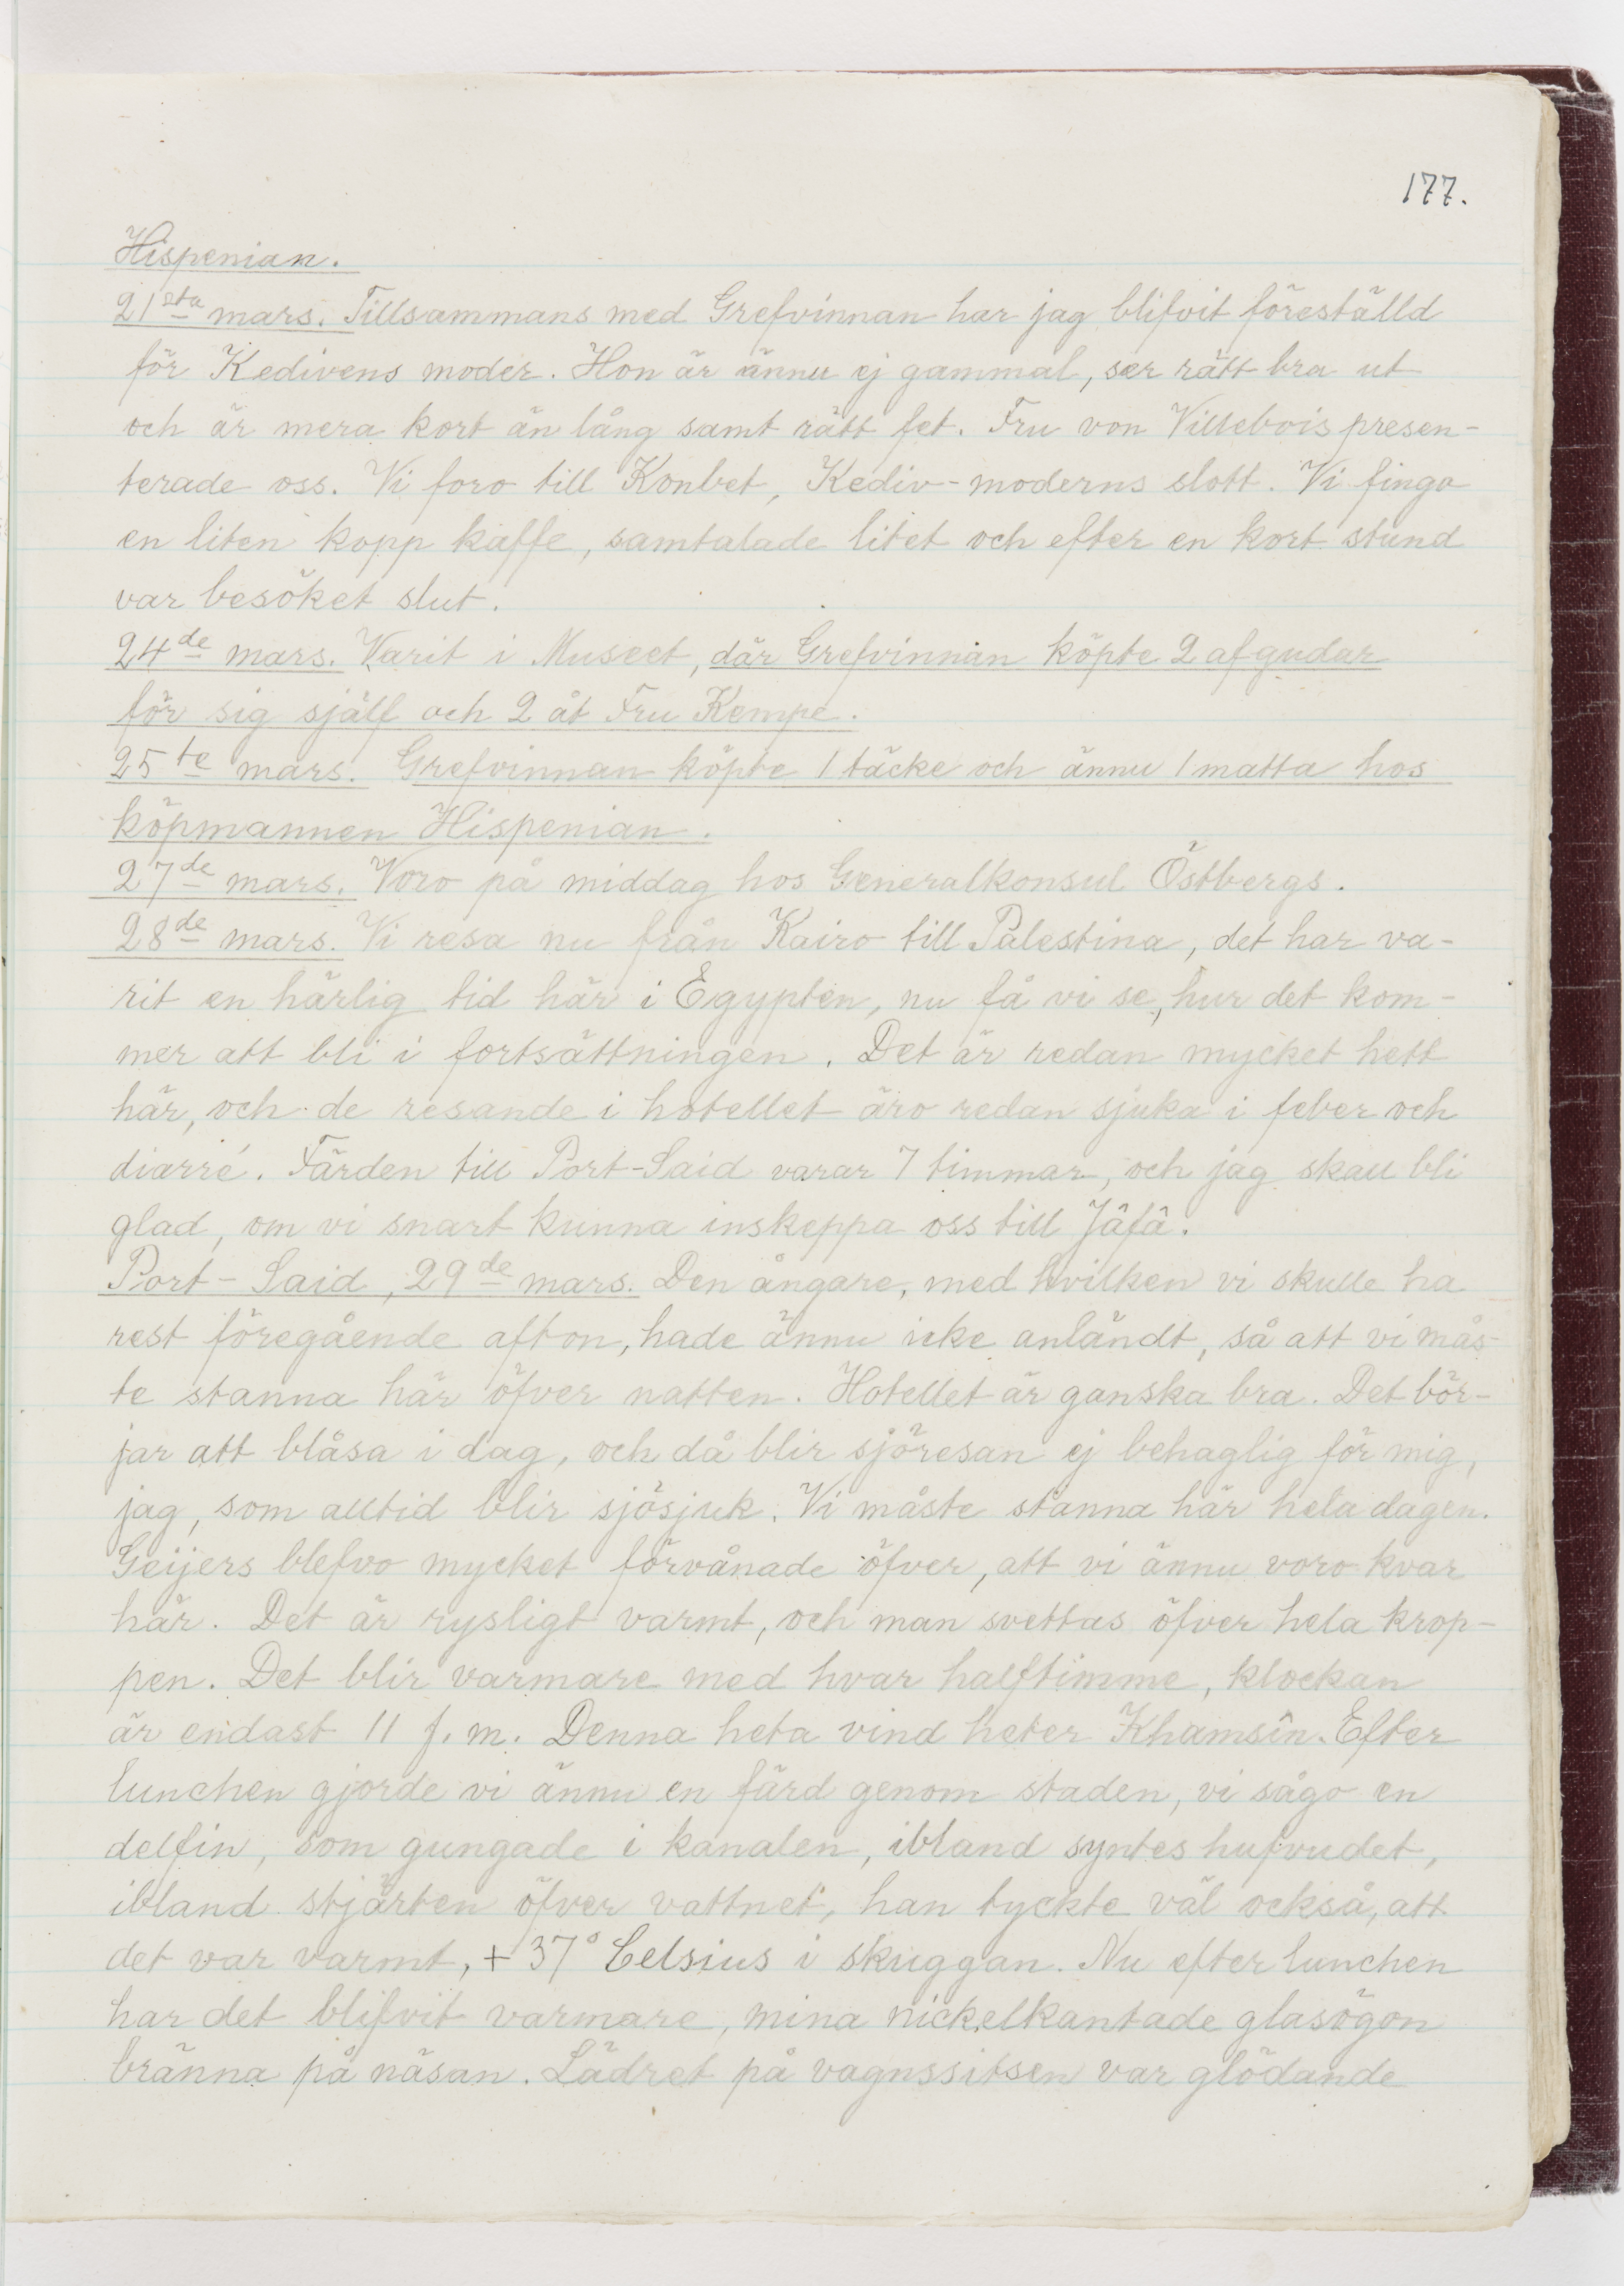 177.
Hispenian.
21sta mars. Tillsammans med Grefvinnan har jag blifvit föreställd
för Kedivens moder. Hon är ännu ej gammal, ser rätt bra ut
och är mera kort än lång samt rätt fet. Fru von Villebois presen-
terade oss. Vi foro till Konbet, Kediv-moderns slott. Vi fingo
en liten kopp kaffe, samtalade litet och efter en kort stund
var besöket slut.
24de mars. Varit i Museet, där Grefvinnan köpte 2 afgudar
för sig själf och 2 åt Fru Kempe.
25te mars. Grefvinnan köpte 1 täcke och ännu 1 matta hos
köpmannen Hispenian.
27de mars. Voro på middag hos Generalkonsul Östbergs.
28de mars. Vi resa nu från Kairo till Palestina, det har va-
rit en härlig tid här i Egypten, nu få vi se, hur det kom-
mer att bli i fortsättningen. Det är redan mycket hett
här, och de resande i hotellet äro redan sjuka i feber och
diarré. Färden till Port-Said varar 7 timmar, och jag skall bli
glad, om vi snart kunna inskeppa oss till Jâfâ.
Port-Said, 29de mars. Den ångare, med hvilken vi skulle ha
rest föregående afton, hade ännu icke anländt, så att vi mås-
te stanna här öfver natten. Hotellet är ganska bra. Det bör-
jar att blåsa i dag, och då blir sjöresan ej behaglig för mig,
jag, som alltid blir sjösjuk. Vi måste stanna här hela dagen.
Geijers blefvo mycket förvånade öfver, att vi ännu voro kvar
här. Det är rysligt varmt, och man svettas öfver hela krop-
pen. Det blir varmare med hvar halftimme, klockan
är endast 11 f. m. Denna heta vind heter Khamsîn. Efter
lunchen gjorde vi ännu en färd genom staden, vi sågo en
delfin, som gungade i kanalen, ibland syntes hufvudet,
ibland stjärten öfver vattnet, han tyckte väl också, att
det var varmt, + 37° Celsius i skuggan. Nu efter lunchen
har det blifvit varmare, mina nickelkantade glasögon
bränna på näsan. Lädret på vagnssitsen var glödande